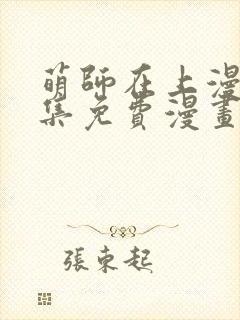 萌師在上漫
集免費漫畫
張東起